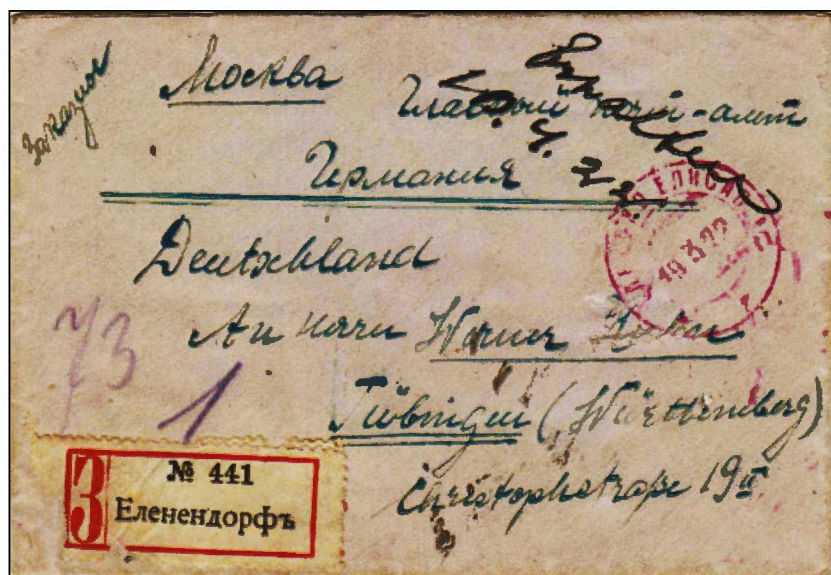 Заказное
Москва
Главный почт-амт
Германия
Deutschland
An Herrn Werner
Tübingen (Württemberg)
Christophstraße 19 II
73
1
19 3 22
З
№ 441
Еленендорфъ